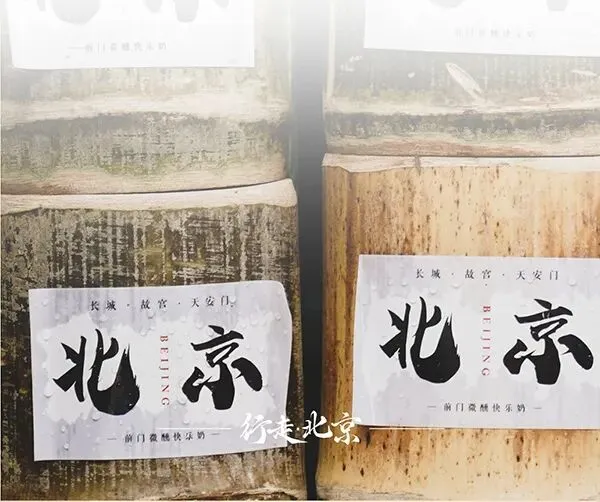 北京
—前门微醺快乐奶
北京
—前门微醺快乐奶—
长城·故宫·天安门
北京
BEIJING
—前门微醺快乐奶—
长城·故宫·天安门
北京
BEIJING
—前门微醺快乐奶—
行走·北京